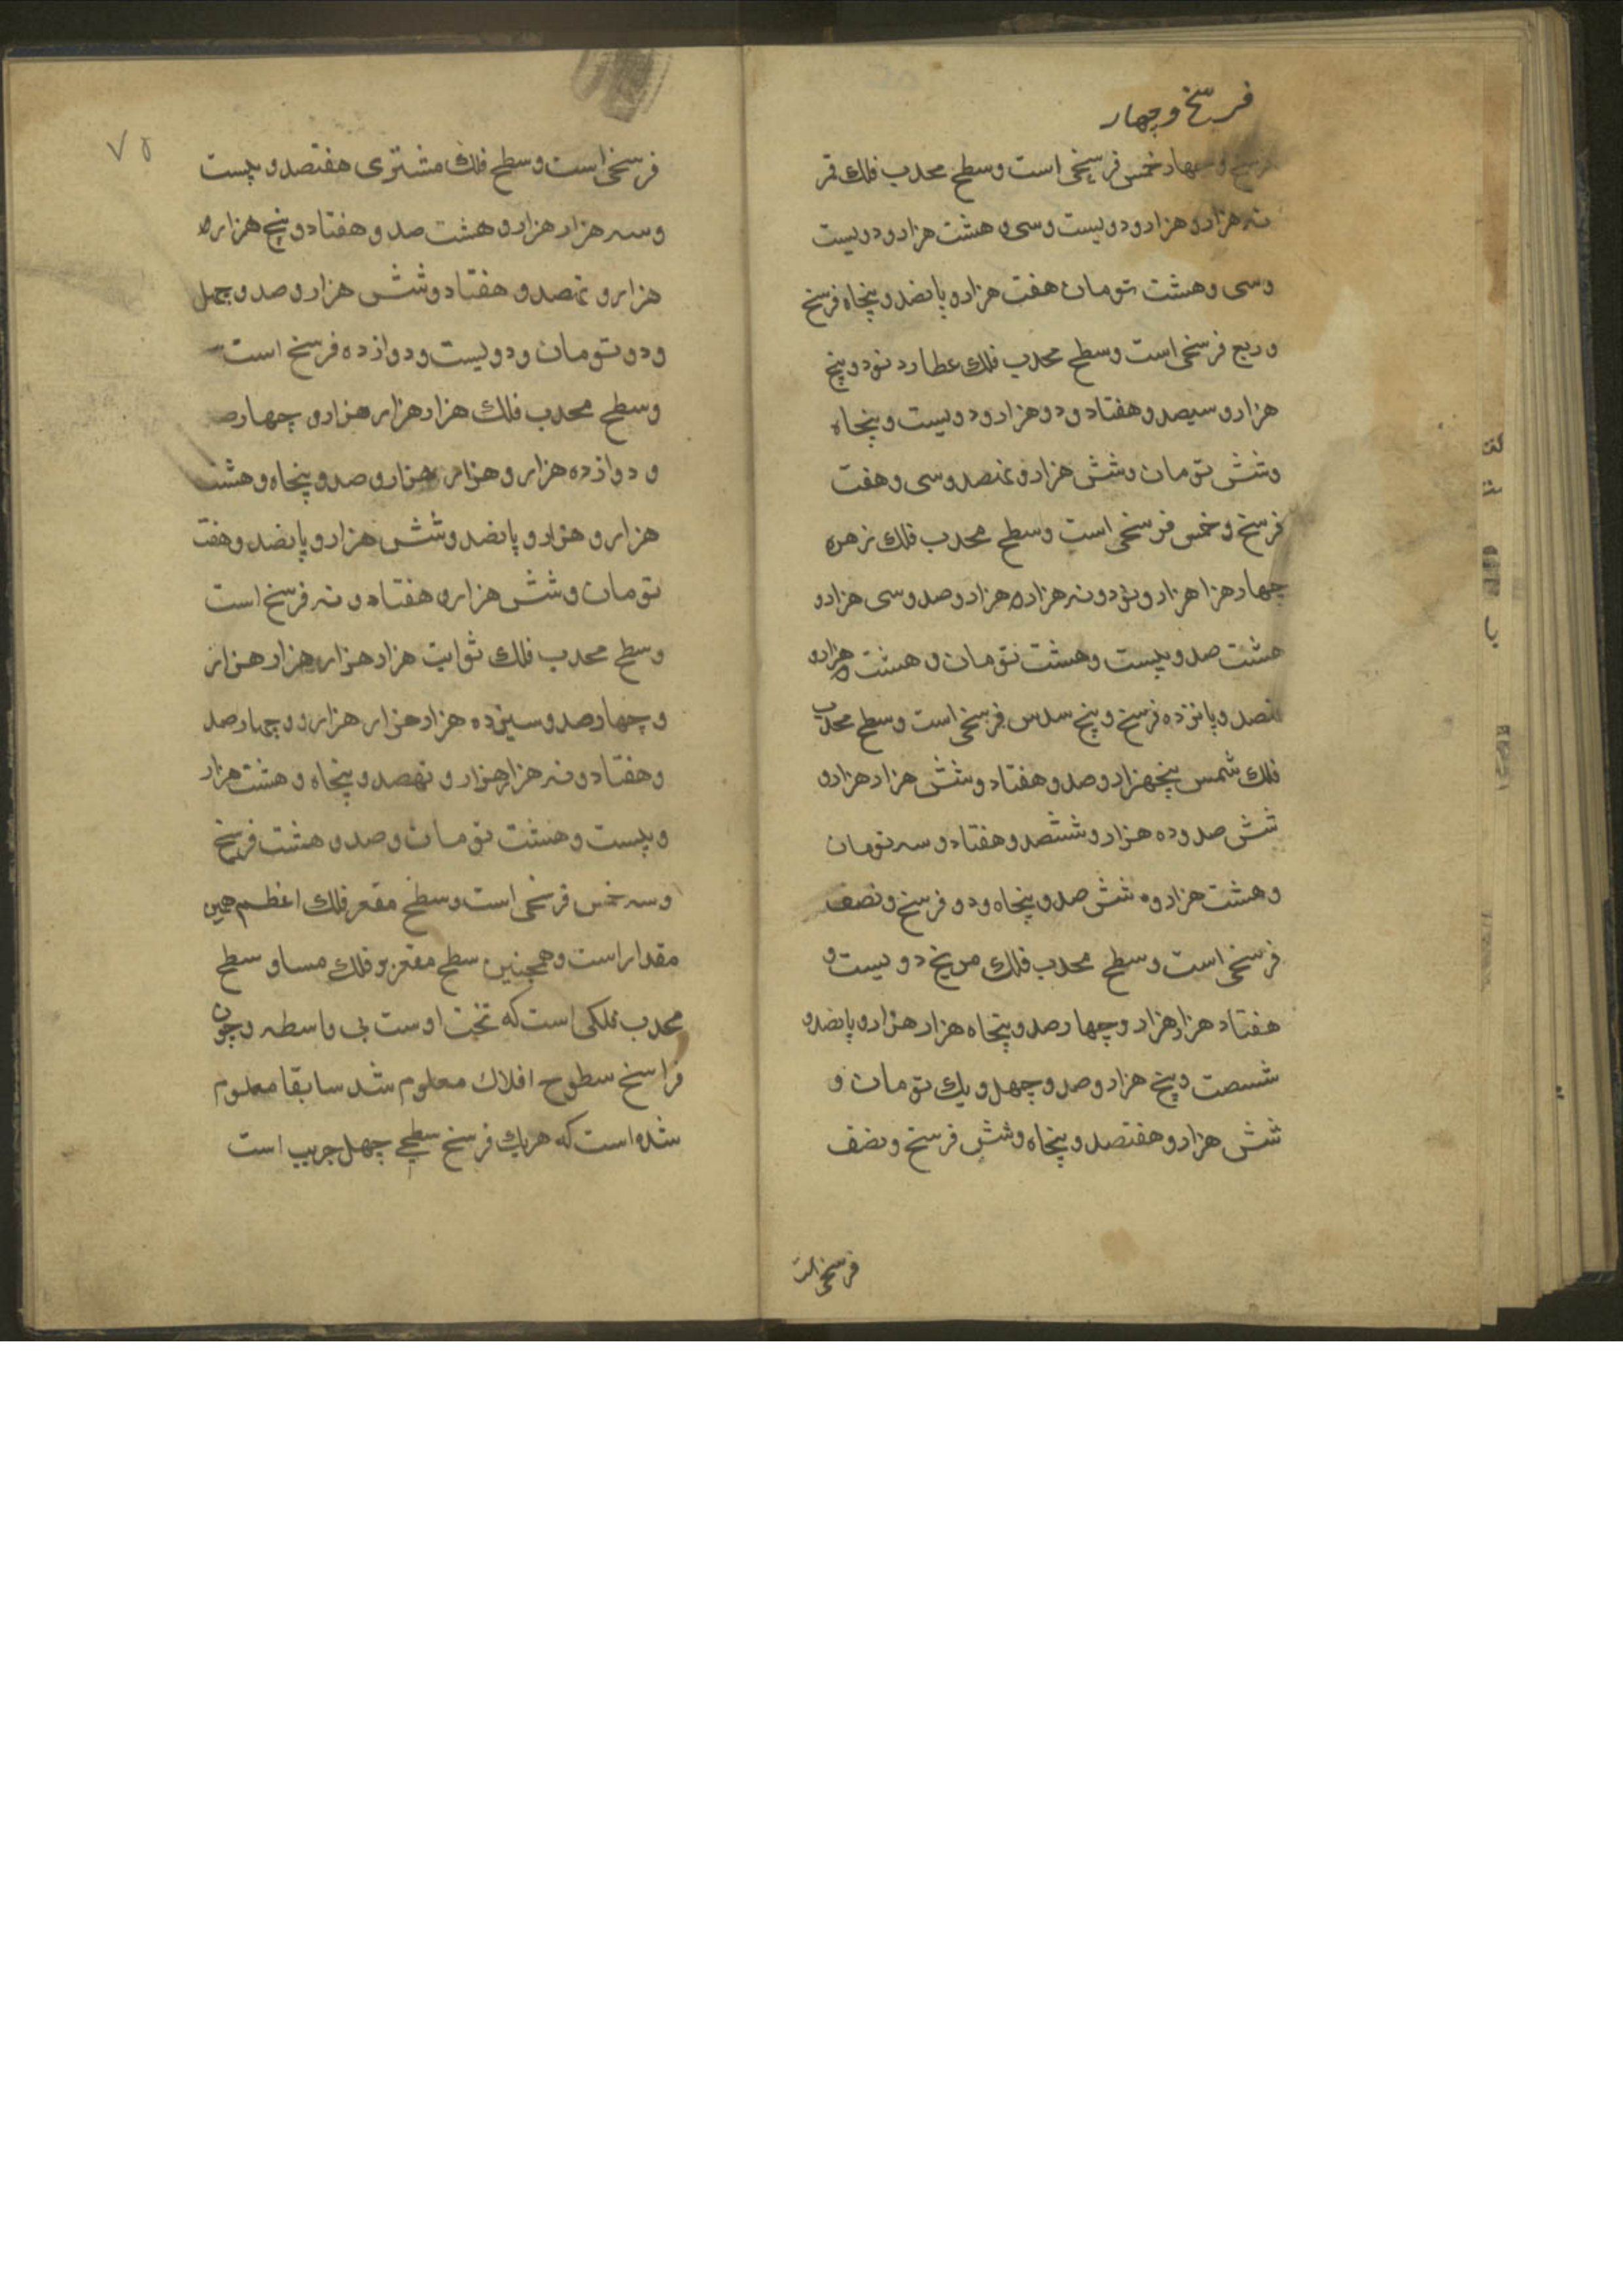 فرسخ و چهار
فرسخ و چهار خمس فرسخی است وسطح محدب فلك قمر
نه هزار و هزار و دویست و سی و هشت هزار و دویست
وسی و هشت تومان هفت هزار و پانصد و پنجاه فرسخ
و ربع فرسخی است وسطح محدب فلك عطارد نود و پنج
هزار و سیصد و هفتاد و دو هزار و دویست و پنجاه
وشش تومان وشش هزار و نهصد و سی و هفت
فرسخ و خمس فرسخی است وسطح محدب فلك زهره
چهار هزا هزار و نود و نه هزار هزار و صد و سی هزار و
هشت صد و بیست و هشت تومان و هشت هزار و
نهصد و پانزده فرسخ و پنج سدس فرسخی است وسطح محدب
فلك شمس پنجهزار و صد و هفتاد و شش هزار هزار و
شش صد و ده هزار و ششصد و هفتاد و سه تومان
و هشت هزار و شش صد و پنجاه و دو فرسخ و نصف
فرسخی است وسطح محدب فلك مریخ دویست و
هفتاد هزار هزار و چهار صد و پنجاه هزار هزار و پانصد و
شصت و پنج هزار و صد و چهل و یك تومان و
شش هزار و هفتصد و پنجاه و شش فرسخ و نصف
فرسخی است
۷۵
فرسخی است وسطح فلك مشتری هفتصد و بیست
و سه هزار هزار و هشت صد و هفتاد و پنج هزار
هزار و نهصد و هفتاد و شش هزار و صد و چهل
و دو تومان و دویست و دوازده فرسخ است
وسطح محدب فلك هزار هزار هزار و چهارصد
و دوازده هزار و هزار هزار و صد و پنجاه و هشت
هزار و هزار و پانصد و شش هزار و پانصد و هفت
تومان و شش هزار و هفتاد و نه فرسخ است
وسطح محدب فلك ثوابت هزار هزار هزار هزار
و چهارصد و سیزده هزار هزار هزار و چهارصد
و هفتاد و نه هزار هزار و نهصد و پنجاه و هشت هزار
و بیست و هشت تومان و صد و هشت فرسخ
و سه خمس فرسخی است وسطح مقعر فلك اعظم همین
مقدار است و همچنین سطح مقعر هر فلك مساو سطح
محدب فلکی است که تحت اوست بی واسطه و چون
فراسخ سطوح افلاك معلوم شد سابقا معلوم
شده است که هر یك فرسخ سطحی چهل جریب است